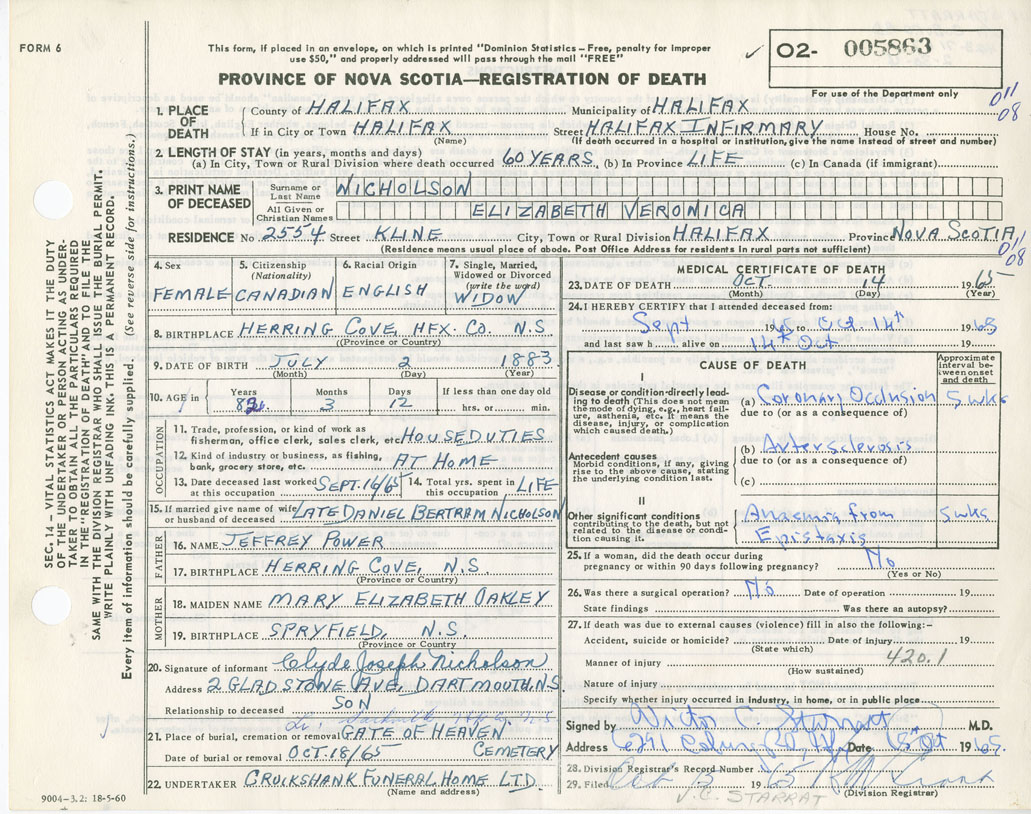 FORM 6
This form, if placed in an envelope, on which is printed "Dominion Statistics – Free, penalty for improper
use $50," and properly addressed will pass through the mail "FREE"
PROVINCE OF NOVA SCOTIA—REGISTRATION OF DEATH
✓ 02- 005863
For use of the Department only
011
08
SEC. 14 – VITAL STATISTICS ACT MAKES IT THE DUTY
OF THE UNDERTAKER OR PERSON ACTING AS UNDER-
TAKER TO OBTAIN ALL THE PARTICULARS REQUIRED
IN THE "REGISTRATION OF DEATH" AND TO FILE THE
SAME WITH THE DIVISION REGISTRAR WHO SHALL ISSUE THE BURIAL PERMIT.
WRITE PLAINLY WITH UNFADING INK. THIS IS A PERMANENT RECORD.
Every item of information should be carefully supplied. (See reverse side for instructions.)
1. PLACE OF DEATH
County of HALIFAX Municipality of HALIFAX
If in City or Town HALIFAX Street HALIFAX INFIRMARY House No.
(Name) (If death occurred in a hospital or institution, give the name instead of street and number)
2. LENGTH OF STAY (in years, months and days)
(a) In City, Town or Rural Division where death occurred 60 YEARS (b) In Province LIFE (c) In Canada (if immigrant)
3. PRINT NAME OF DECEASED
Surname or Last Name NICHOLSON
All Given or Christian Names ELIZABETH VERONICA
RESIDENCE No. 2554 Street KLINE City, Town or Rural Division HALIFAX Province NOVA SCOTIA
(Residence means usual place of abode. Post Office Address for residents in rural parts not sufficient)
011
08
4. Sex FEMALE
5. Citizenship (Nationality) CANADIAN
6. Racial Origin ENGLISH
7. Single, Married, Widowed or Divorced (write the word) WIDOW
8. BIRTHPLACE HERRING COVE, HFX. CO. N.S.
(Province or Country)
9. DATE OF BIRTH JULY 2 1883
(Month) (Day) (Year)
10. AGE Years Months Days If less than one day old
82 3 12 hrs. or min.
OCCUPATION
11. Trade, profession, or kind of work as
fisherman, office clerk, sales clerk, etc. HOUSEDUTIES
12. Kind of industry or business, as fishing,
bank, grocery store, etc. AT HOME
13. Date deceased last worked at this occupation SEPT. 16/65
14. Total yrs. spent in this occupation LIFE
15. If married give name of wife or husband of deceased LATE DANIEL BERTRAM NICHOLSON
FATHER
16. NAME JEFFREY POWER
17. BIRTHPLACE HERRING COVE, N.S.
(Province or Country)
MOTHER
18. MAIDEN NAME MARY ELIZABETH OAKLEY
19. BIRTHPLACE SPRYFIELD, N.S.
(Province or Country)
20. Signature of informant Clyde Joseph Nicholson
Address 2 GLADSTONE AVE, DARTMOUTH, N.S.
Relationship to deceased SON
21. Place of burial, cremation or removal GATE OF HEAVEN
Date of burial or removal OCT. 18/65 CEMETERY
22. UNDERTAKER CRUIKSHANK FUNERAL HOME LTD.
(Name and address)
9004-3.2: 18-5-60
MEDICAL CERTIFICATE OF DEATH
23. DATE OF DEATH OCT. 14 1965
(Month) (Day) (Year)
24. I HEREBY CERTIFY that I attended deceased from:
Sept 1965 to Oct. 14th 1965
and last saw h alive on 14th Oct 19
CAUSE OF DEATH
Approximate interval between onset and death
I
Disease or condition directly leading to death (This does not mean the mode of dying, e.g., heart failure, asthenia, etc. It means the disease, injury, or complication which caused death.)
(a) Coronary Occlusion 5 wks
due to (or as a consequence of)
Antecedent causes
Morbid conditions, if any, giving rise to the above cause, stating the underlying condition last.
(b) Artersclerosis
due to (or as a consequence of)
(c)
II
Other significant conditions contributing to the death, but not related to the disease or condition causing it.
from 5 wks
Epistaxis
25. If a woman, did the death occur during
pregnancy or within 90 days following pregnancy? No
(Yes or No)
26. Was there a surgical operation? No Date of operation 19
State findings Was there an autopsy?
27. If death was due to external causes (violence) fill in also the following:–
Accident, suicide or homicide? Date of injury 19
(State which)
420.1
Manner of injury
(How sustained)
Nature of injury
Specify whether injury occurred in industry, in home, or in public place
Signed by Victor C. Starratt M.D.
Address 6291 Coburg Rd, Date 15 Oct 1965
28. Division Registrar's Record Number
29. Filed Oct 15 1965
(Division Registrar)
V.C. STARRAT